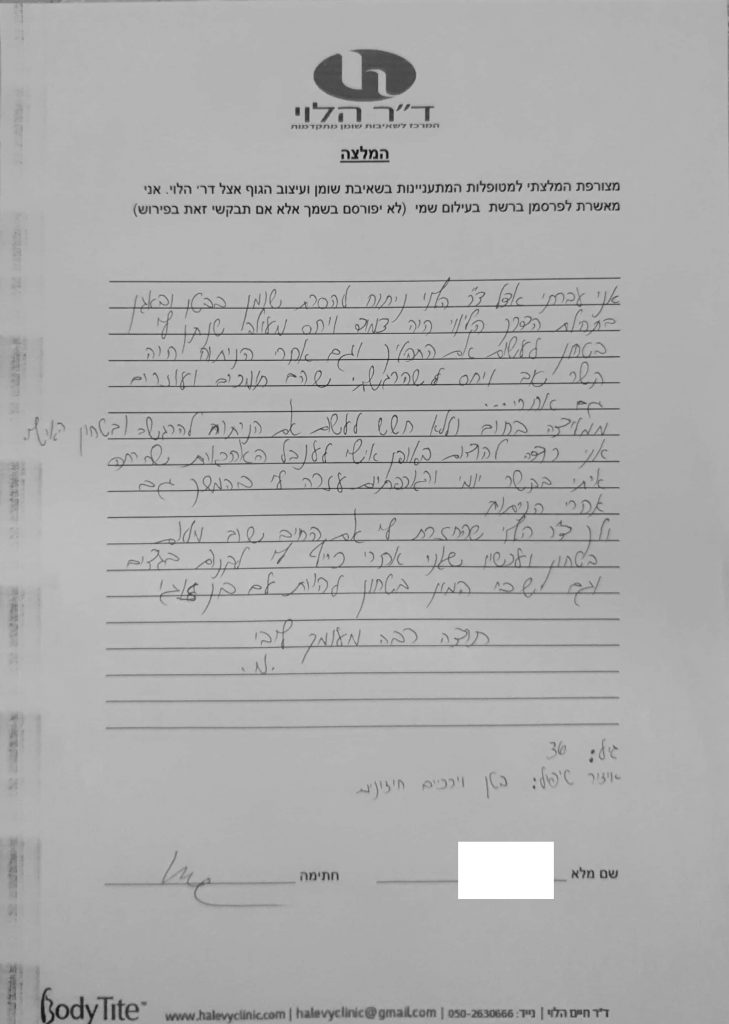 ד״ר הלוי
המרכז לשאיבות שומן מתקדמות
המלצה
מצורפת המלצתי למטופלות המתעניינות בשאיבת שומן ועיצוב הגוף אצל דר׳ הלוי. אני
מאשרת לפרסמן ברשת בעילום שמי (לא יפורסם בשמך אלא אם תבקשי זאת בפירוש)
אני עברתי אצל ד״ר הלוי ניתוח להסרת שומן בבטן ובאגן
בתחלת הדרך הליווי היה צמוד ויחס מעולה שנתן לי
בטחון לעשות את התהליך וגם אחרי הניתוח היה
קשר טוב ויחס שהרגשתי שהם חומרים ועוזרים
גם אחרי...
ממליצה בחום וללא חשש לעשות את הניתוח להרגשה ובטחון האישי.
אני רוצה להודות באופן אישי לענבל האחראית שהייתה
איתי בקשר יומי והאכפתיות עזרה לי בהמשך גם
אחרי הניתוח
ולך ד״ר הלוי שהחזרת לי את החיים שוב מלאת
בטחון ועכשיו שאני אחרי כייף לי לקנות בגדים
וגם יש לי המון בטחון להיות עם בן זוגי
תודה רבה מעומק ליבי
.נ.
גיל: 36
אזור טיפול: בטן וירכיים חיצוניות
שם מלא
חתימה
BodyTite™ www.halevyclinic.com | halevyclinic@gmail.com | 050-2630666 :ד״ר חיים הלוי | נייד